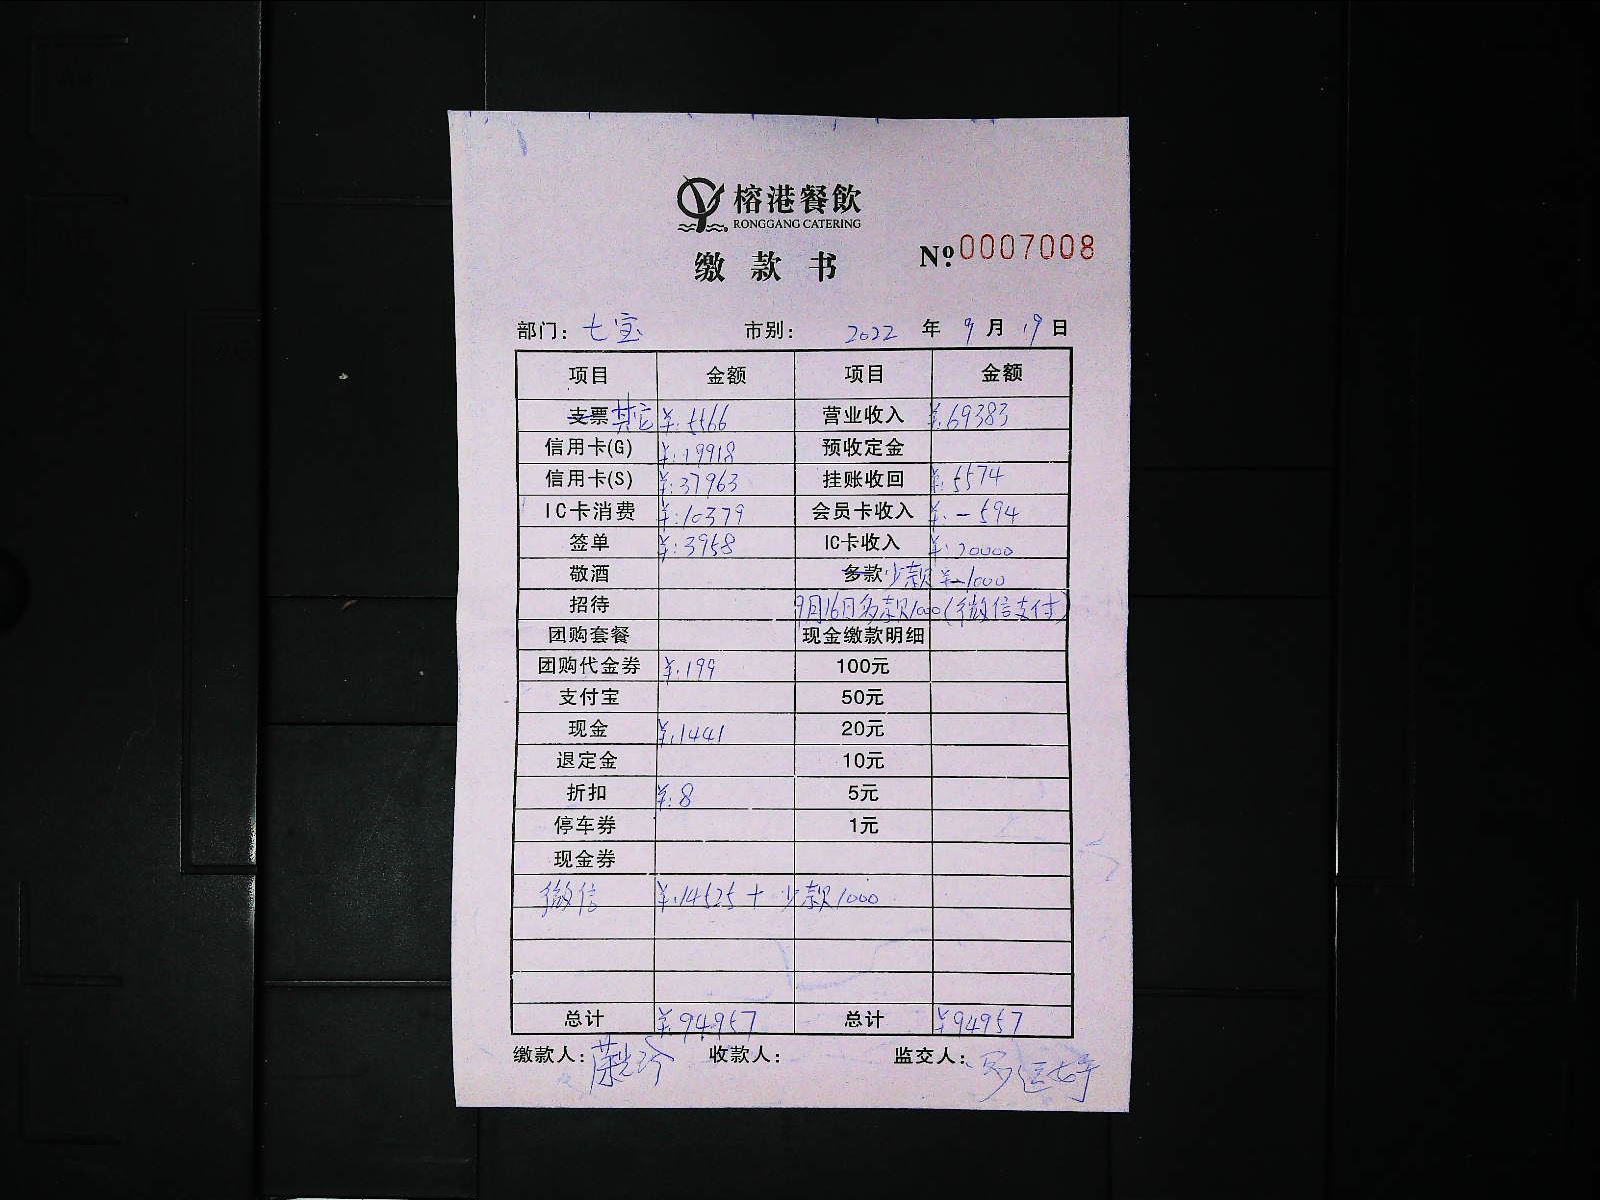 榕港餐飲
RONGGANG CATERING
缴款书
№ 0007008
部门: 七宝 市别: 2022 年 9 月 19 日
项目 金额 项目 金额
支票 其它 ¥:5566 营业收入 ¥:69383
信用卡(G) ¥:19918 预收定金
信用卡(S) ¥:37963 挂账收回 ¥:5574
IC卡消费 ¥:10379 会员卡收入 ¥:-594
签单 ¥:3958 IC卡收入 ¥:20000
敬酒 多款 少款 ¥-1000
招待 9月16日多款1000(微信支付)
团购套餐 现金缴款明细
团购代金券 ¥:199 100元
支付宝 50元
现金 ¥:1441 20元
退定金 10元
折扣 ¥:8 5元
停车券 1元
现金券
微信 ¥:14525 + 少款1000
总计 ¥94957 总计 ¥94957
缴款人: 收款人: 监交人: